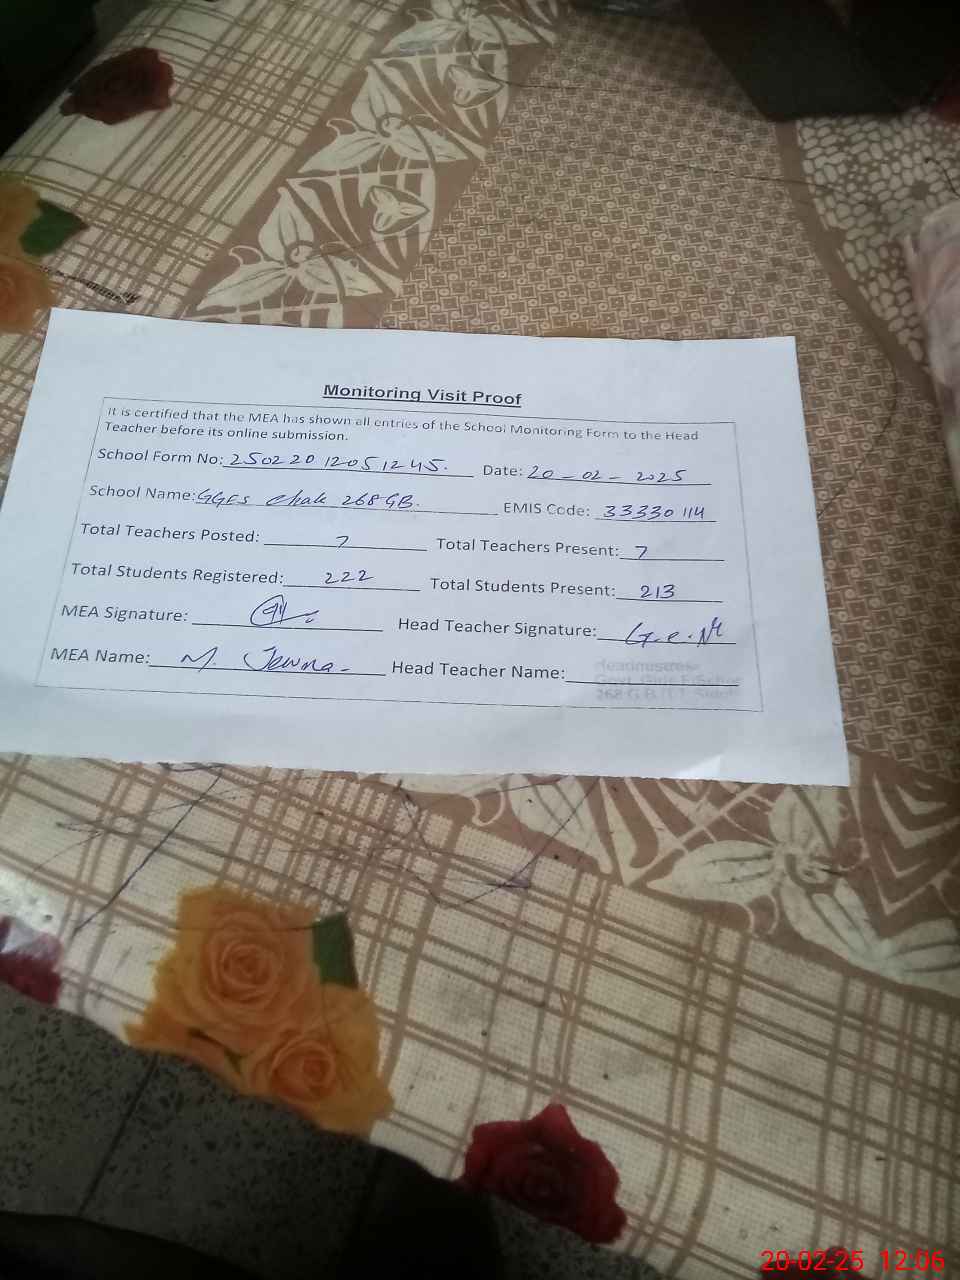 Monitoring Visit Proof
It is certified that the MEA has shown all entries of the School Monitoring Form to the Head
Teacher before its online submission.
School Form No: 250220 12051245. Date: 20-02-2025
School Name: GGES Chak 268 GB. EMIS Code: 33330114
Total Teachers Posted: 7 Total Teachers Present: 7
Total Students Registered: 222 Total Students Present: 213
MEA Signature: Head Teacher Signature:
MEA Name: M. Head Teacher Name:
Headmistress
Govt. Girls E/School
268 G.B
20-02-25 12:06